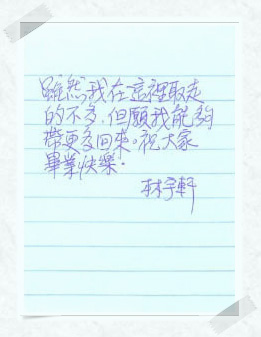 雖然我在這裡取走
的不多,但願我能夠
帶更多回來。祝大家
畢業快樂。
林宇軒